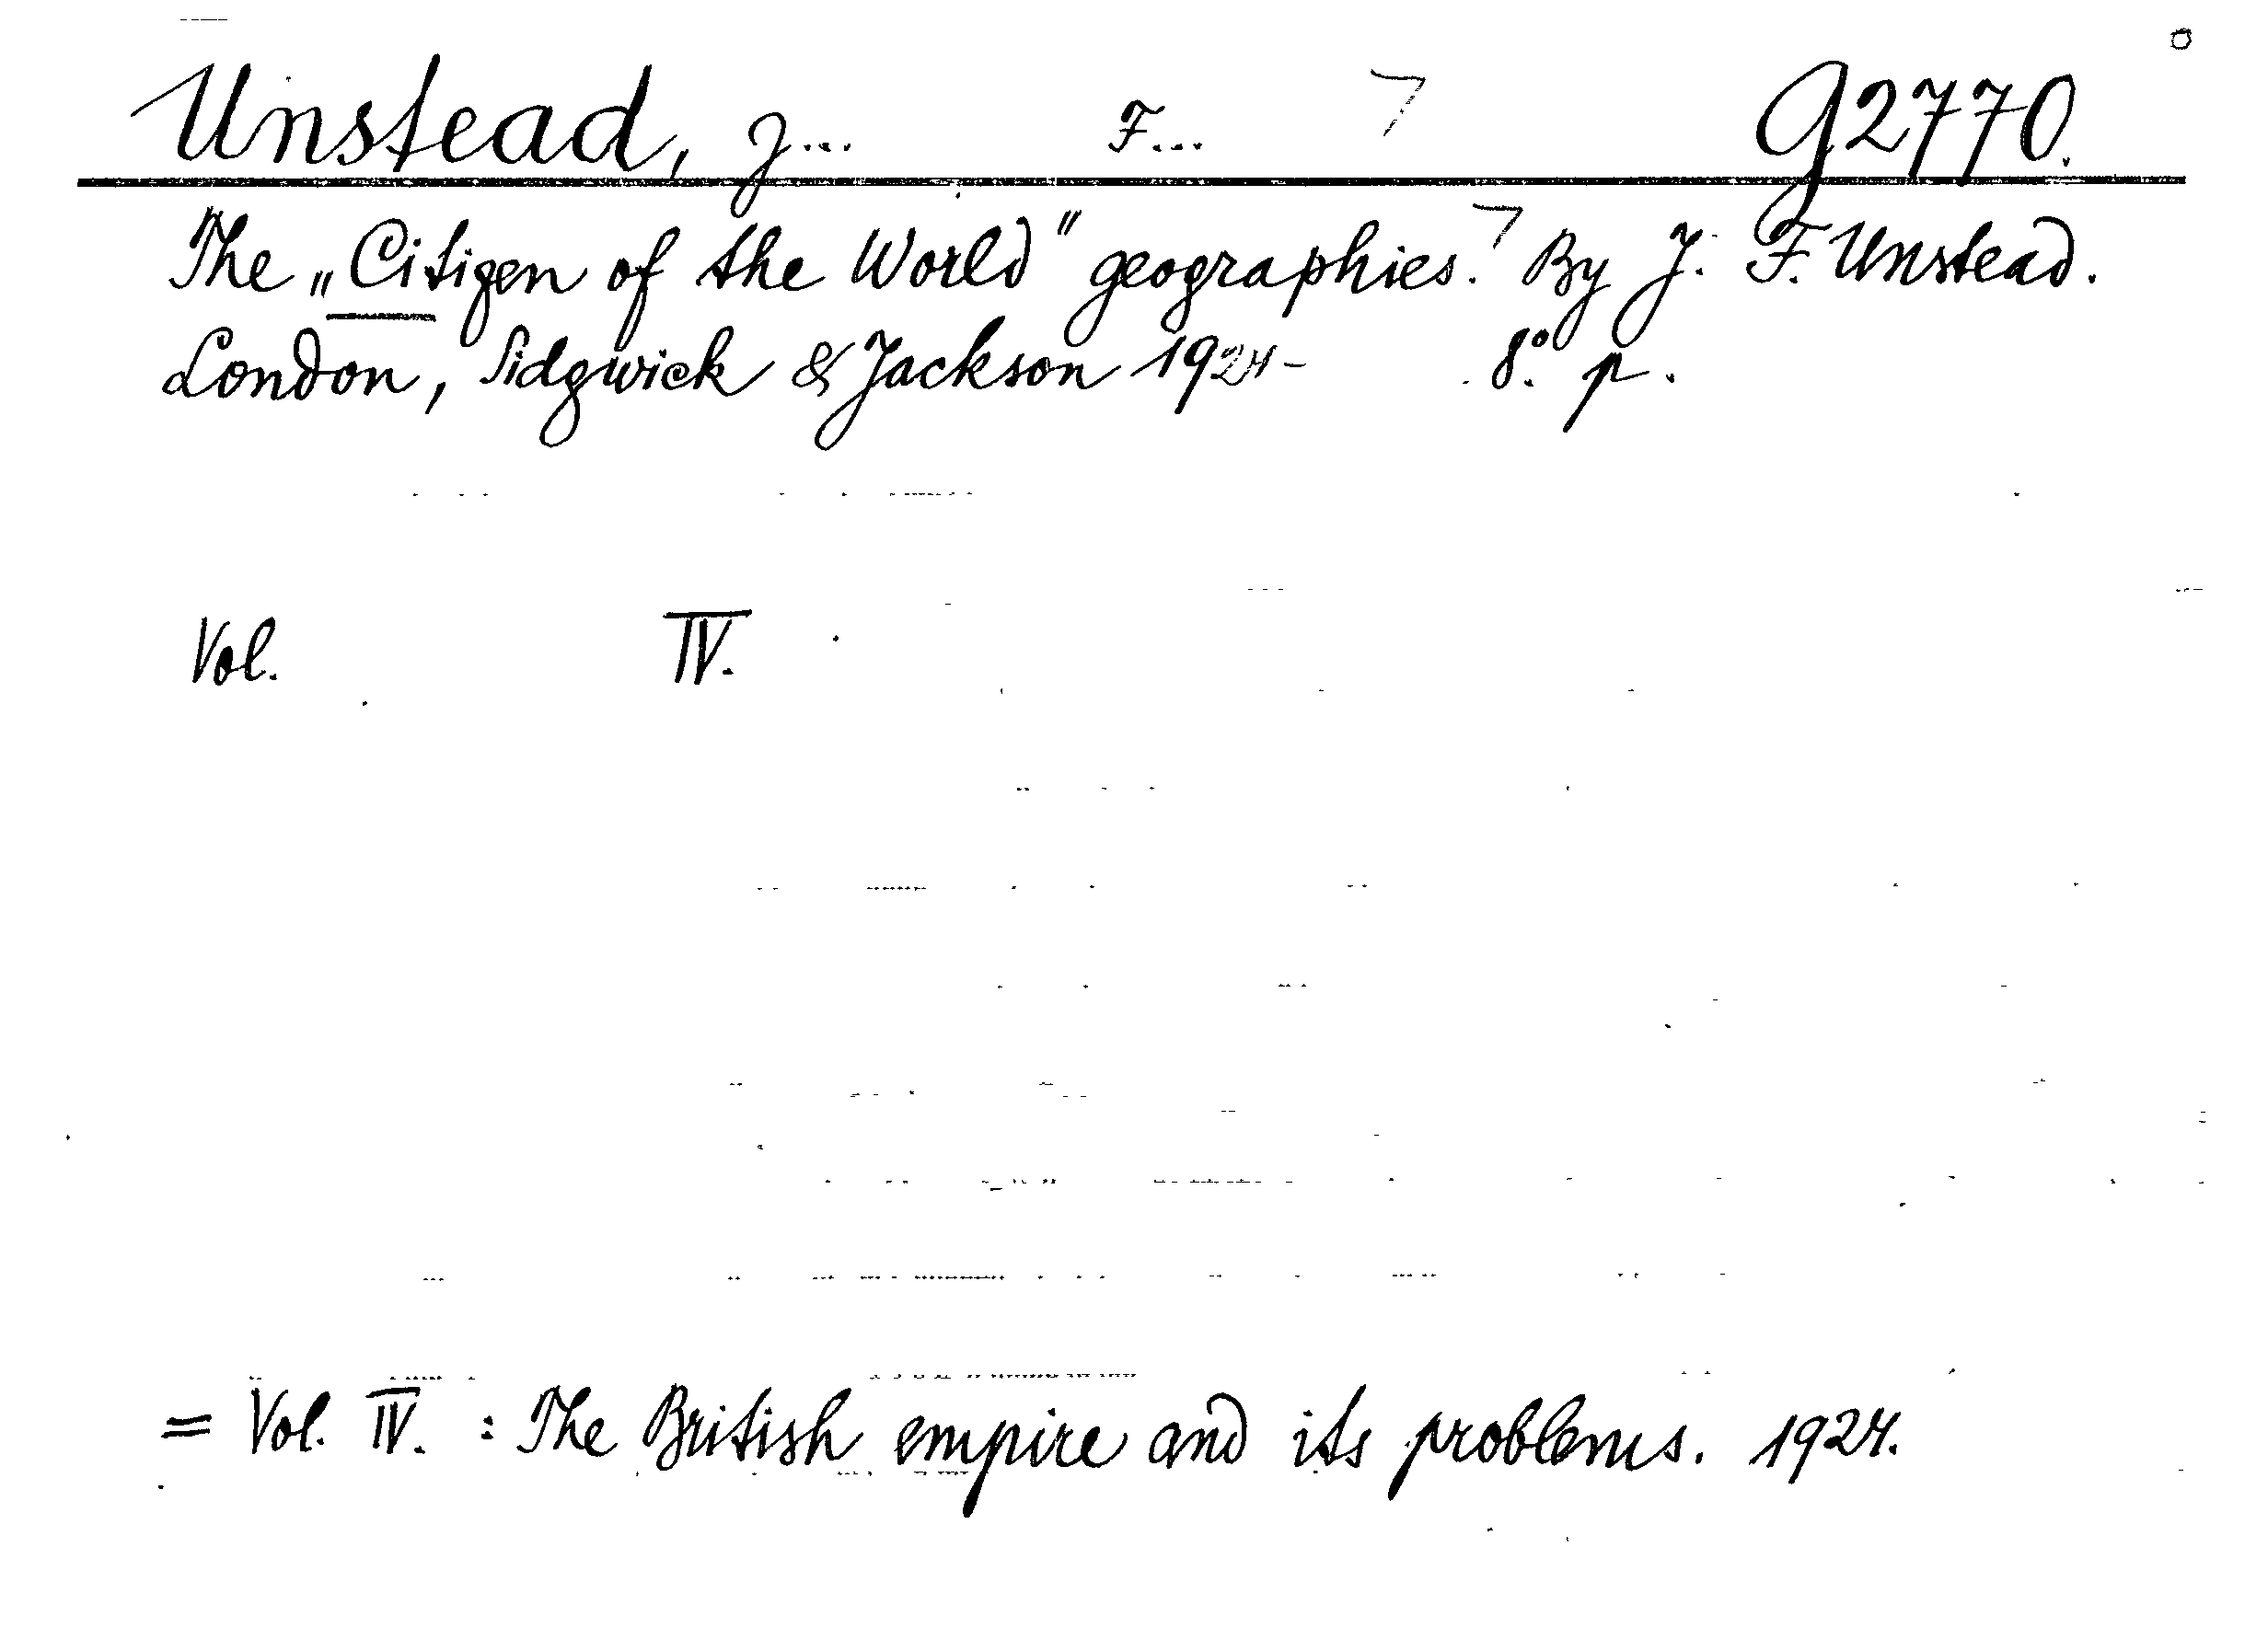 Unstead, J... F... 7 G2770.
The „Citizen of the World" geographies. 7 By J. F. Unstead.
London, Sidgwick & Jackson 1924- 8°. p.
Vol. IV.
= Vol. IV. : The British empire and its problems. 1924.